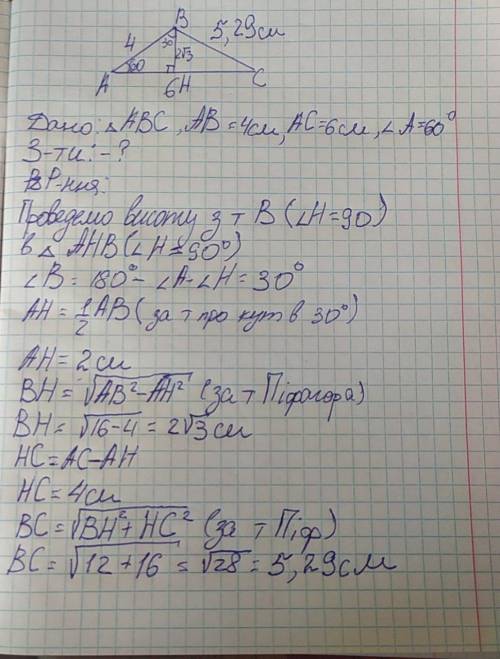 B
5,29см
4
30
2√3
60
A
6
H
C
Дано: △ABC, AB=4см, AC=6см, ∠A=60°
З-ти: -?
Р-ння:
Проведемо висоту з т B (∠H=90)
в △ AHB (∠H=90°)
∠B = 180° - ∠A-∠H = 30°
AH = 1/2 AB (за т про кут в 30°)
AH = 2см
BH = √AB²-AH² (за т Піфагора)
BH = √16-4 = 2√3 см
HC = AC-AH
HC = 4см
BC = √BH²+HC² (за т Піф)
BC = √12+16 = √28 = 5,29см